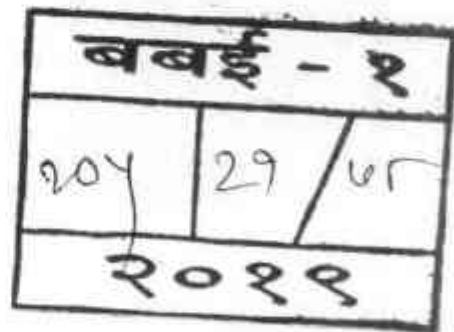 बबई - १
२०५ २१ / ७८
२०११